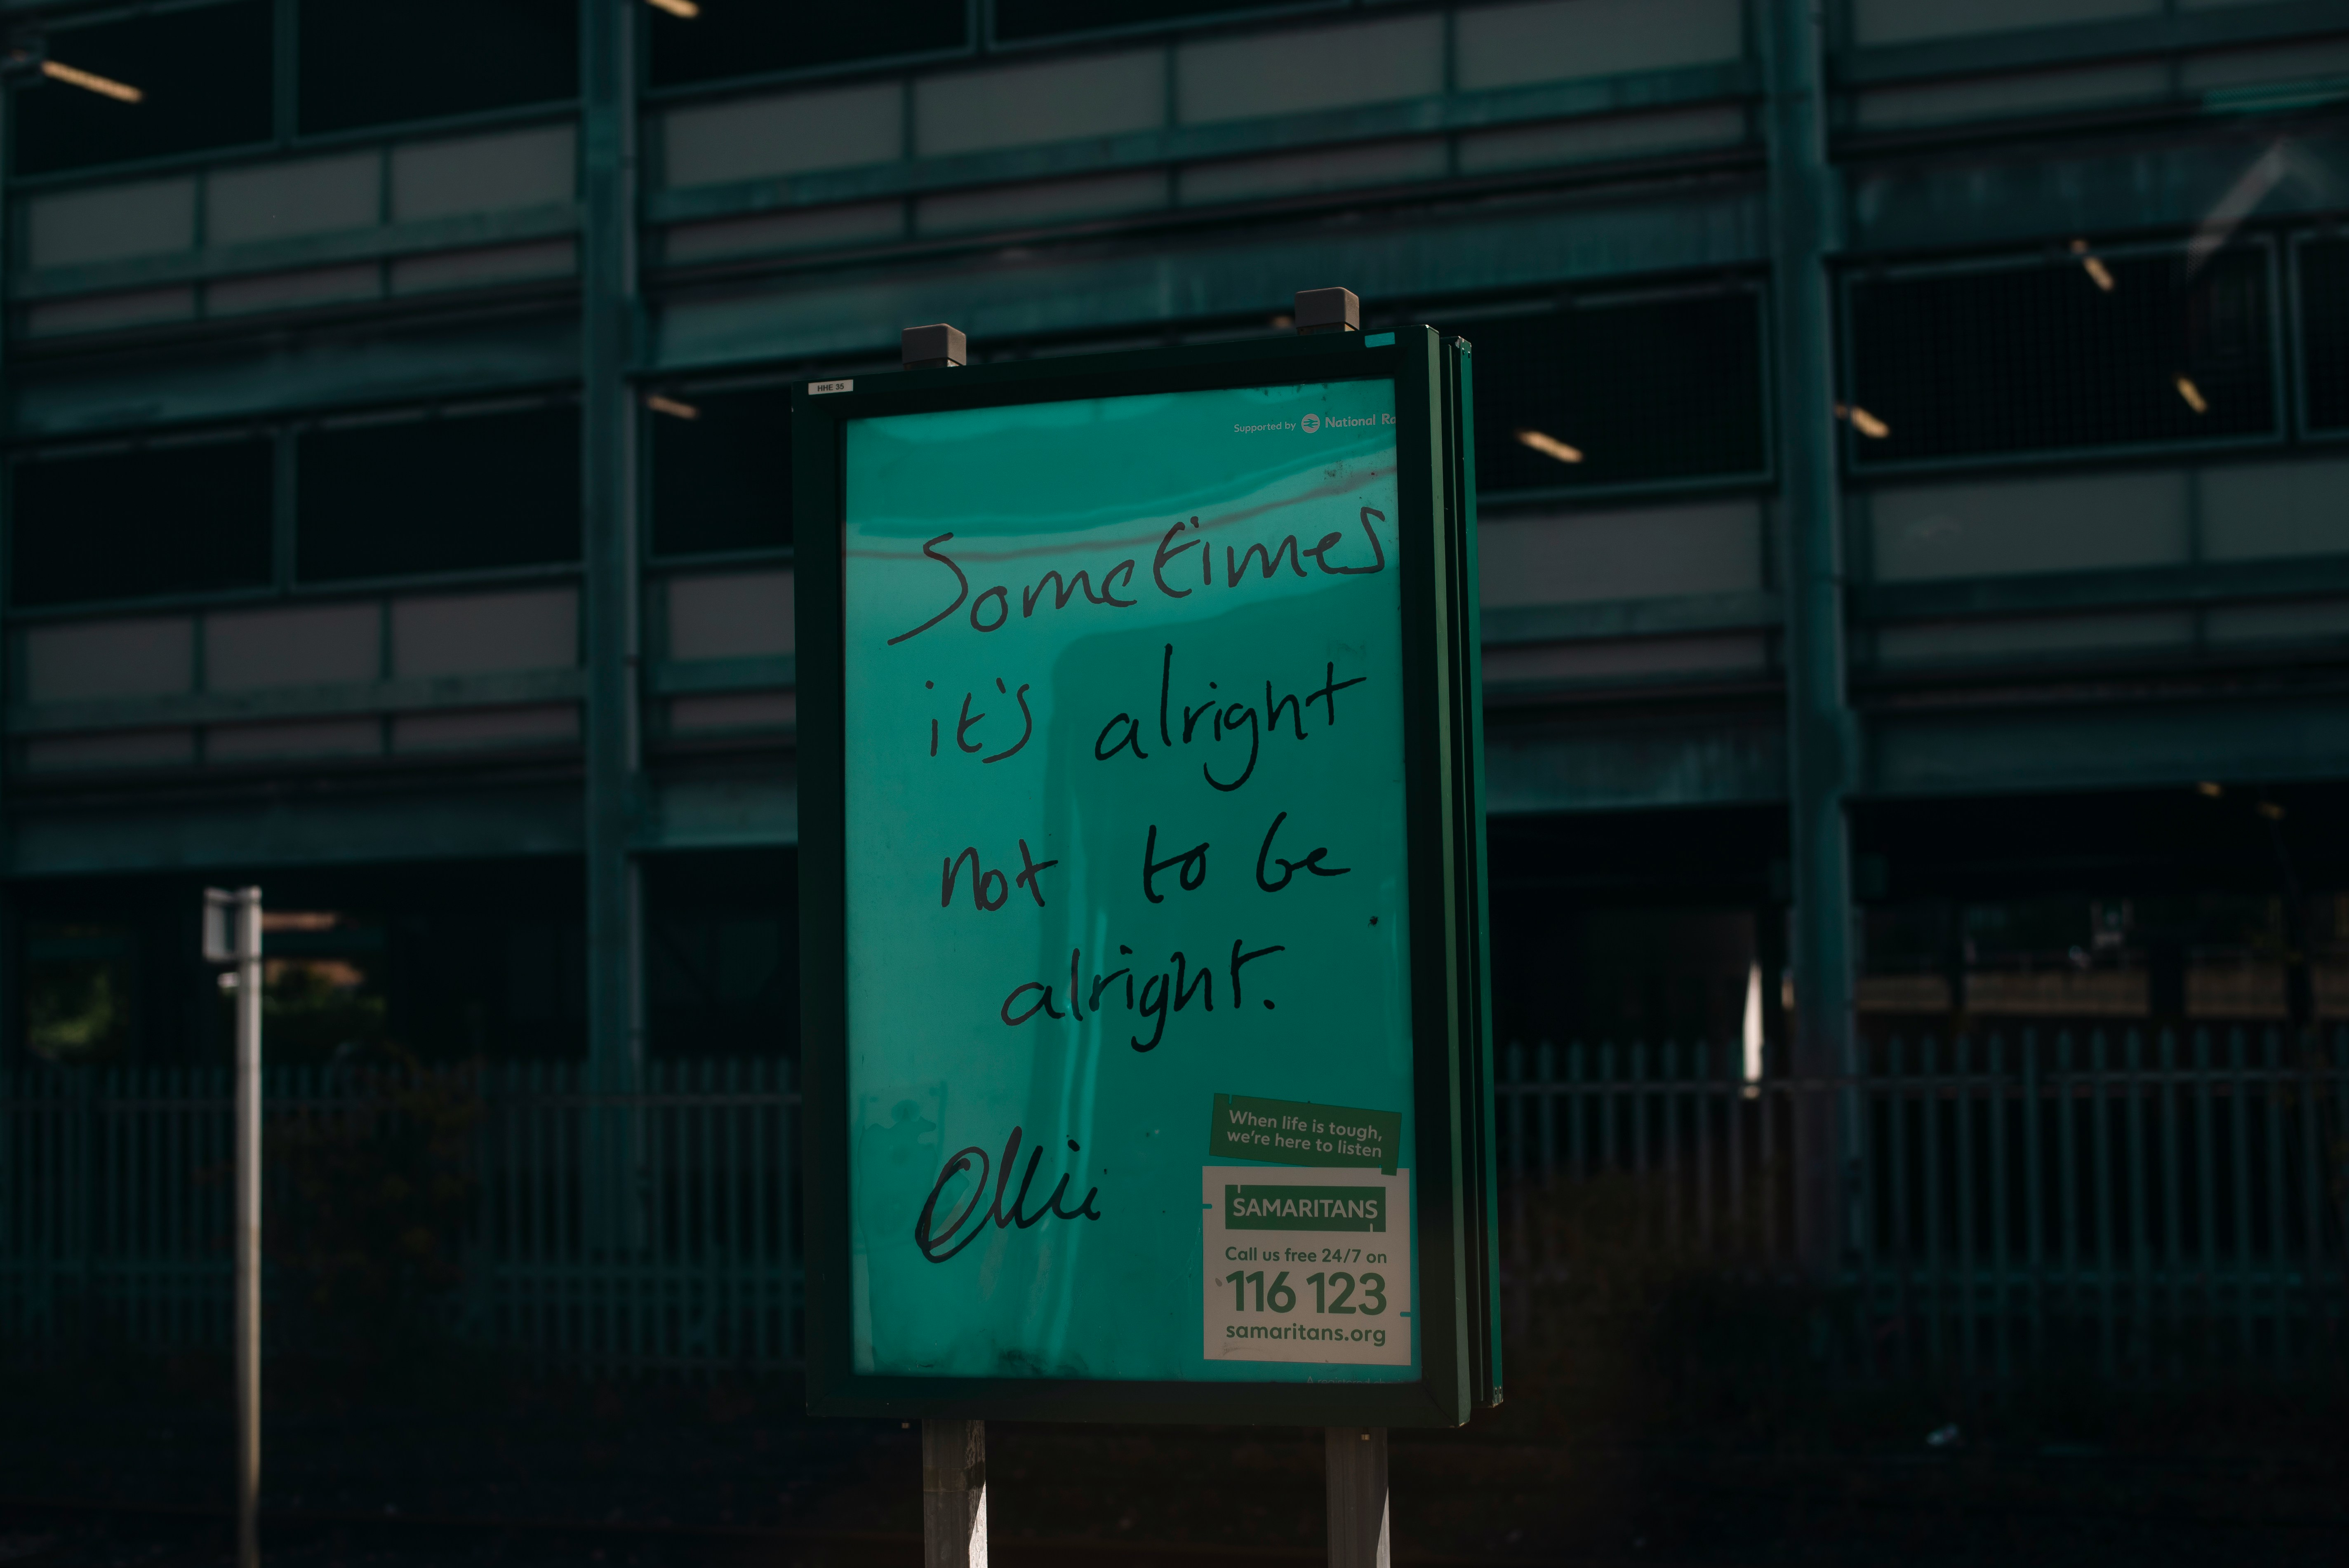 HHE 35
Supported by National Ra
Sometimes
it's alright
not to be
alright.
Olli
When life is tough,
we're here to listen
SAMARITANS
Call us free 24/7 on
116 123
samaritans.org